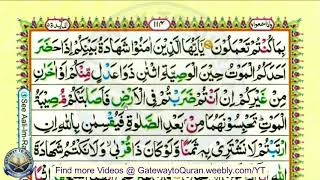 ١١٤
بِمَا كُنْتُمْ تَعْمَلُوْنَ يٰۤاَيُّهَا الَّذِيْنَ اٰمَنُوْا شَهَادَةُ بَيْنِكُمْ اِذَا حَضَرَ
اَحَدَكُمُ الْمَوْتُ حِيْنَ الْوَصِيَّةِ اثْنٰنِ ذَوَا عَدْلٍ مِّنْكُمْ اَوْ اٰخَرٰنِ
مِنْ غَيْرِكُمْ اِنْ اَنْتُمْ ضَرَبْتُمْ فِي الْاَرْضِ فَاَصَابَتْكُمْ مُّصِيْبَةُ
الْمَوْتِ تَحْبِسُوْنَهُمَا مِنْۢ بَعْدِ الصَّلٰوةِ فَيُقْسِمٰنِ بِاللّٰهِ اِنِ
ارْتَبْتُمْ لَا نَشْتَرِيْ بِهٖ ثَمَنًا وَّلَوْ كَانَ ذَا قُرْبٰى وَلَا نَكْتُمُ
Find more Videos @ GatewaytoQuran.weebly.com/YT